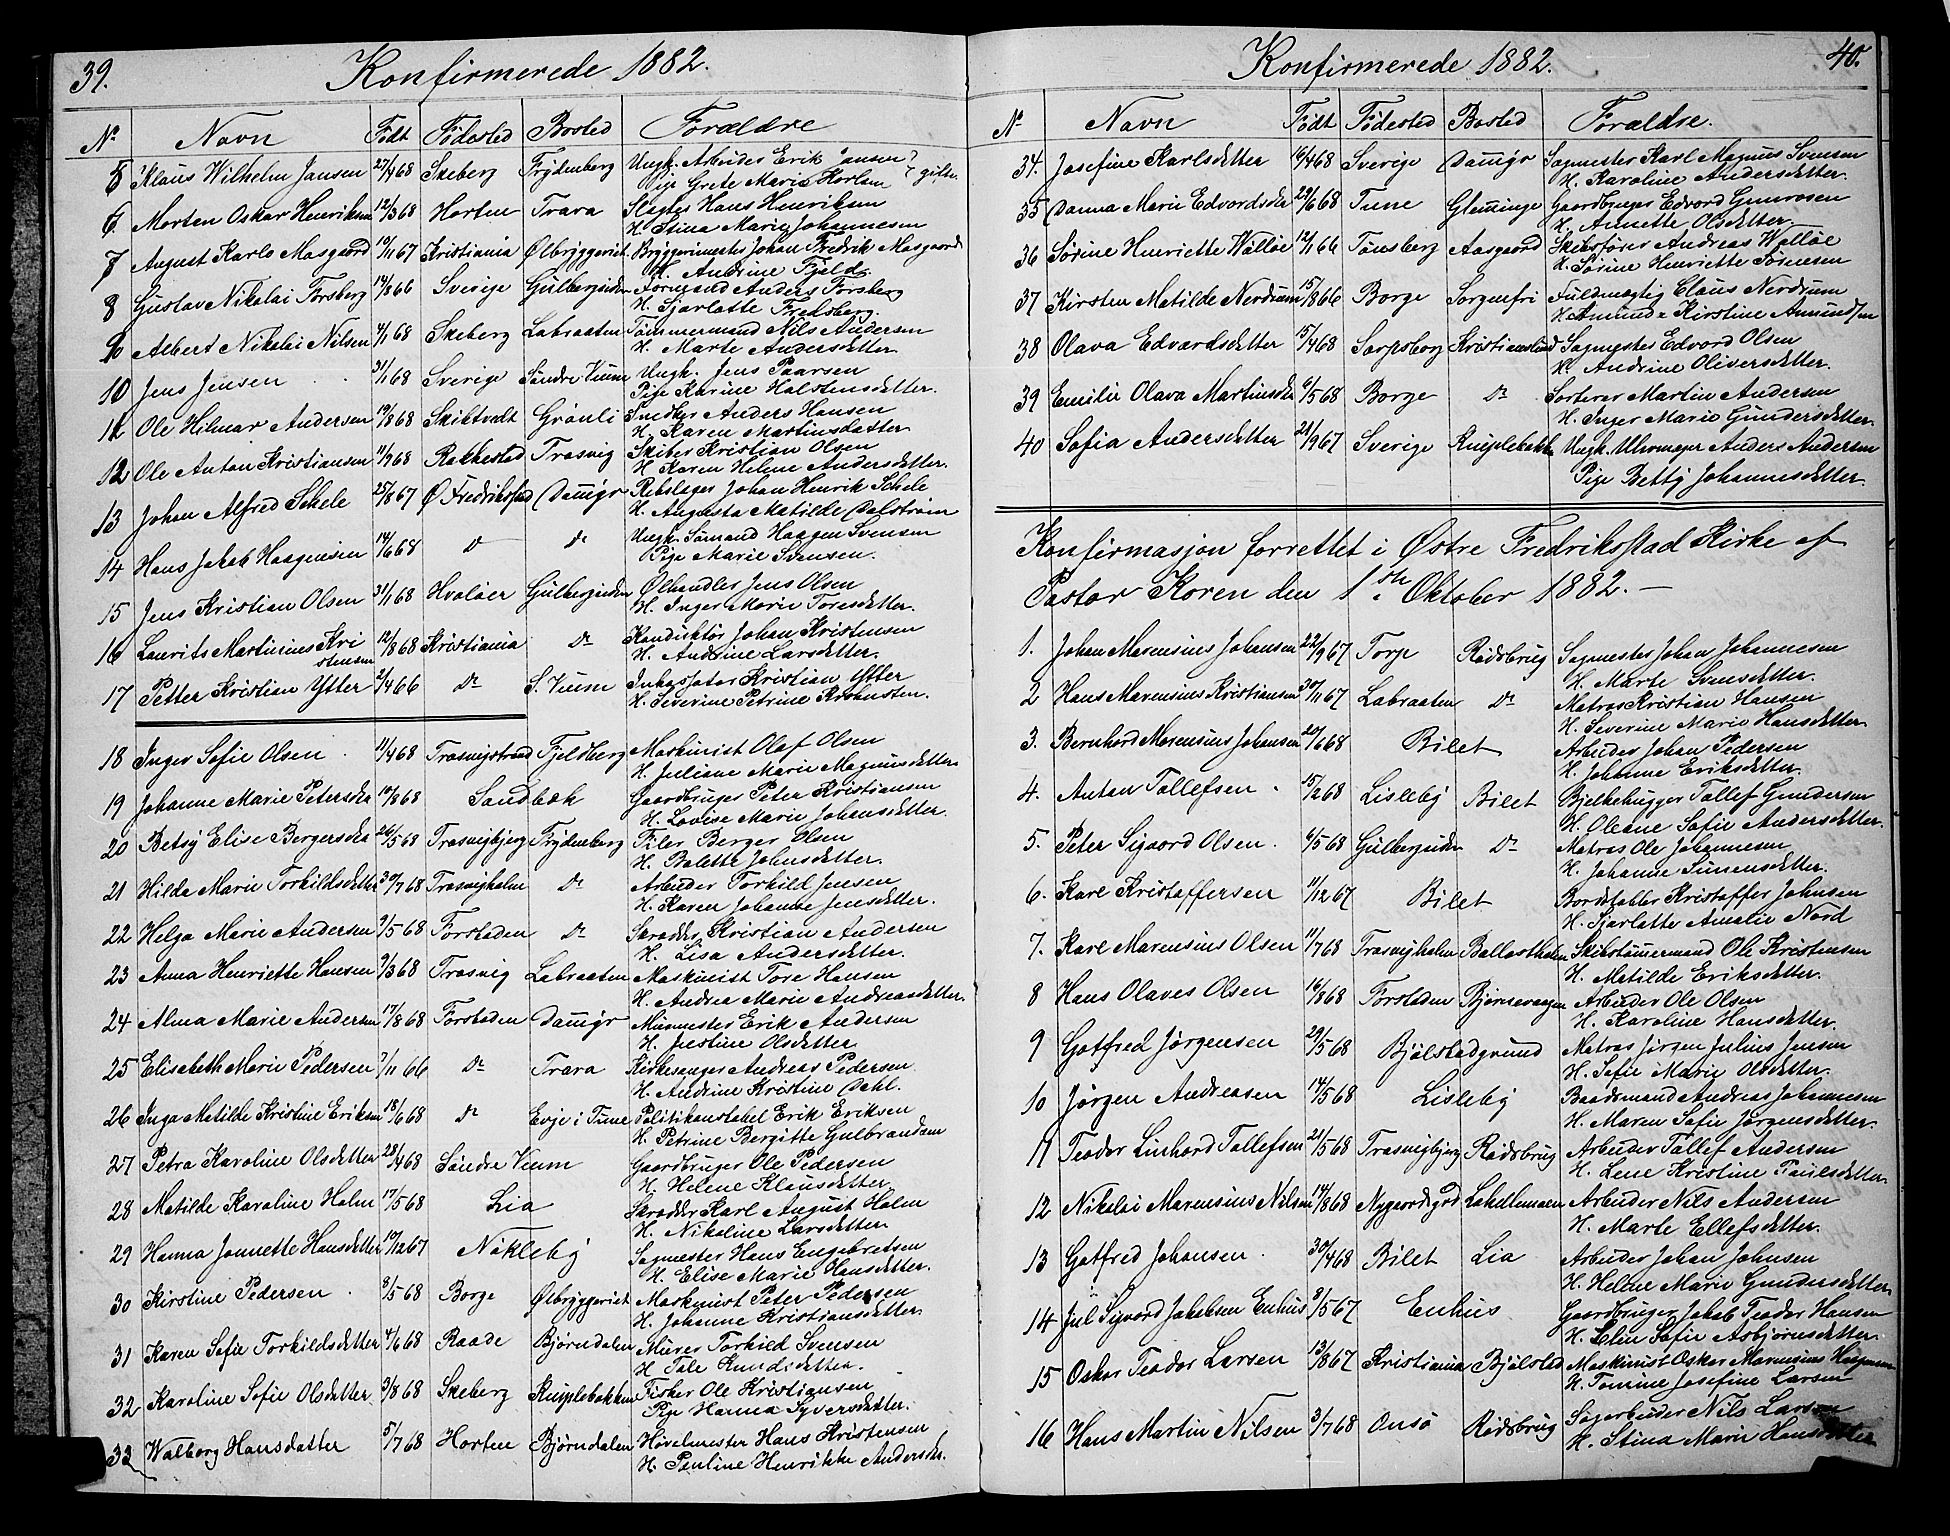 39.
Konfirmerede 1882.
No Navn Födt Födested Bosted Forældre
5 Klaus Wilhelm Jansen 27/4 68 Skeberg Frydenberg Ungk. Arbeider Erik Jansen
Pige Grete Marie Karlsen
6 Morten Oskar Henriksen 12/3 68 Horten Trara Slagter Hans Henriksen
H. Stina Marie Johannesen
7 August Karlo Masgaard 19/11 67 Kristiania Ølbryggeriet Bryggerimester Johan Fredrik Masgaard
H. Andrine Fjeld
8 Gustav Nikolai Forsberg 14/8 66 Sverige Gulbergsiden Formand Anders Forsberg
H. Sjarlatte Fredsberg.
9 Albert Nikolai Nilsen 4/1 68 Skeberg Labraaten Tömmermand Nils Andersen
H. Marte Andersdetter
10 Jens Jensen 31/1 68 Sverige Söndre Vium Ungk. Jens Paarsen
Pige Karine Halstensdetter.
11 Ole Hilmar Andersen 19/8 68 Skibtvedt Grönli Snedker Anders Hansen
H. Karen Martinsdatter
12 Ole Anton Kristiansen 11/9 68 Rakkestad Trosvig Skiber Kristian Olsen
H. Karen Helene Andersdetter.
13 Johan Alfred Schele 25/8 67 Ø Fredriksstad Damigr Rebslager Johan Henrik Schele
H. Augusta Matilde Dalström
14 Hans Jakob Haagensen 14/6 68 do do Ungk. Sömand Haagen Svensen
Pige Marie Svensen.
15 Jens Kristian Olsen 31/1 68 Hvaløer Gulbergsiden Ølhandler Jens Olsen
H. Inger Marie Toresdetter.
16 Laurits Martinius Kristensen 12/8 68 Kristiania do Konduktör Johan Kristensen
H. Andrine Larsdetter.
17 Petter Kristian Ytter 2/4 66 do S. Vium Inkassator Kristian Ytter
H. Severine Petrine
18 Inger Sofie Olsen 11/4 68 Trosvigstrand Fjeldberg Maskinist Olaf Olsen
H. Juliane Marie Magnusdetter.
19 Johanne Marie Petersdtr 10/8 68 Sandbæk Gaardbruger Peter Kristiansen
H. Lovise Marie Johansdetter.
20 Betsy Elise Bergersdtr 26/5 68 Trosvigbjerg Frydenberg Filer Berger Olsen
H. Balette Johnsdetter.
21 Hilda Marie Torkildsdetter 30/7 68 Trosvigholm do Arbeider Torkild Jensen
H. Karen Johanne Jensdetter.
22 Helga Marie Andersen 9/5 68 Forstaden do Skrædder Kristian Andersen
H. Lisa Andersdetter.
23 Anna Henriette Hansen 9/3 68 Trosvig Labraaten Maskinist Tore Hansen
H. Andrea Marie Andreasdetter.
24 Alma Marie Andersen 17/8 68 Forstaden Damigr Murmester Erik Andersen
H. Justine Olsdetter
25 Elisabeth Marie Pedersen 7/11 66 do Trara Kirkesanger Andreas Pedersen
H. Andrine Kristine Dahl.
26 Inga Matilde Kristine Eriksen 18/6 68 do Evje i Tune Politikonstabel Erik Eriksen
H. Petrine Bergitte Gulbrandsen
27 Petra Karoline Olsdetter 28/4 68 Söndre Vium Gaardbruger Ole Pedersen
H. Helene Klausdetter
28 Matilde Karoline Holm 17/5 68 Lia Skrædder Karl August Holm
H. Nikoline Larsdetter
29 Hanna Jonnette Hansdetter 19/12 67 Nökleby Sagmester Hans Engebretsen
H. Elise Marie Hansdetter.
30 Kirstine Pedersen 8/5 68 Borge Ølbryggeriet Maskinist Peter Pedersen
H. Johanne Kristiansdetter
31 Karen Sofie Torkildsdetter 4/6 68 Raade Bjørndalen Murer Torkild Svensen
H. Tale Knudsdetter.
32 Karoline Sofie Olsdetter 3/8 68 Skeberg Kniplebakken Fisker Ole Kristiansen
Pige Hanna Syversdetter.
33 Walborg Hansdatter 5/7 68 Horten Bjørndalen Hövelmester Hans Kristensen
H. Pauline Henrikke Andersdtr.
40.
Konfirmerede 1882.
No Navn Födt Födested Bosted Forældre.
34. Josefine Karlsdetter 16/4 68 Sverige Damigr Sagmester Karl Magnus Svensen
H. Karoline Andersdetter.
35 Danna Marie Edvardsdtr 29/6 68 Tune Glemminge Gaardbruger Edvard Gunrosen
H. Annette Olsdetter.
36 Sörine Henriette Walløe 12/1 66 Tönsberg Aasgaard Skibsförer Andreas Walløe
H. Sörine Henriette Sörensen
37 Kirsten Matilde Nerdrum 15/8 66 Borge Sorgenfri Fuldmægtig Claus Nerdrum
H. Amunda Kirstine Amundsen
38 Olava Edvardsdetter 15/4 68 Sarpsborg Kristianslund Sagmester Edvard Olsen
H. Andrine Oliversdetter.
39 Emilie Olava Martinsdtr 6/5 68 Borge do Sorterer Martin Andersen
H. Inger Marie Gundersdetter
40 Sofia Andersdetter 21/9 67 Sverige Kniplebakken Ungk. Uhrmager Anders Andersen
Pige Betty Johannesdetter
Konfirmasjon forrettet i Østre Fredriksstad Kirke af
Pastor Koren den 1ste Oktober 1882. —
1. Johan Marensius Johansen 22/9 67 Torp Rödsbrug Sagmester Johan Johannesen
H. Marte Svensdetter.
2 Hans Marensius Kristiansen 30/11 67 Labraaten do Matros Kristian Hansen
H. Severine Marie Hansdetter
3. Bernhard Marensius Johansen 20/6 68 Bilet Arbeider Johan Pedersen
H. Johanne Eriksdetter.
4. Anton Tollefsen 15/2 68 Lisleby Bilet Bjelkehugger Tollef Gundersen
H. Oleane Sofie Andersdetter.
5. Peter Sigvard Olsen 6/5 68 Gulbergsiden do Matros Ole Johannesen
H. Johanne Simensdetter.
6. Karl Kristoffersen 11/12 67 Bilet Bordstabler Kristoffer Johnsen
H. Sjarlotte Amalie Nord
7. Karl Marensius Olsen 11/7 68 Trosvigholm Ballastholm Skibstömmermand Ole Kristensen
H. Matilde Eriksdetter.
8 Hans Olaves Olsen 16/8 68 Forstaden Bjørnevaagen Arbeider Ole Olsen
H. Karoline Hansdetter.
9 Gotfred Jørgensen 29/5 68 Bjölstadgrund Matros Jørgen Julius Jensen
H. Sofie Marie Olsdetter.
10 Jørgen Andreasen 14/5 68 Lisleby Baadsmand Andreas Johannesen
H. Maren Sofie Jørgensdetter.
11 Teodor Linhard Tollefsen 21/5 68 Trosvigbjerg Rödsbrug Arbeider Tollef Andersen
H. Lene Kristine Paulsdetter
12 Nikolai Marensius Nilsen 14/8 68 Nygaardsgrd Lahellemoen Arbeider Nils Andersen
H. Marte Ellefsdetter.
13 Gotfred Johansen 30/4 68 Bilet Lia Arbeider Johan Johnsen
H. Helene Marie Gundersdetter
14 Jul Sigvard Jakobsen Enhus 8/5 67 Enhus Gaardbruger Jakob Teodor Hansen
H. Elin Sofie Asbjørnsdetter
15 Oskar Teodor Larsen 13/8 67 Kristiania Bjölstad Maskinist Oskar Marensius
H. Tomine Josefine Larsen
16 Hans Martin Nilsen 3/7 68 Onsö Rödsbrug Sagarbeider Nils Larsen
H. Stina Marie Hansdetter